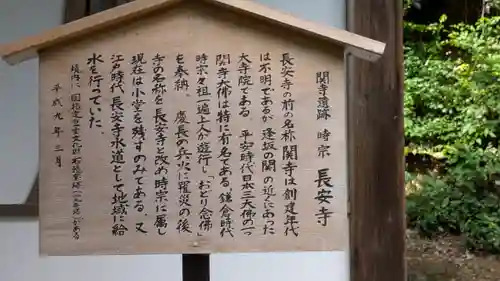 関寺遺跡 時宗 長安寺
長安寺の前の名称関寺は創建年代
は不明であるが逢坂の関の近くにあった
大寺院である。平安時代日本三大佛の一つ
関寺大佛は特に有名である。鎌倉時代
時宗々祖一遍上人が遊行し、おどり念佛
を奉納。慶長の兵火に罹災の後
寺の名称を長安寺と改め時宗に属し
現在は小堂を残すのみである。又
江戸時代長安寺水道として地域に給
水を行っていた。
境内に国指定重要文化財石造宝塔
がある
平成九年三月